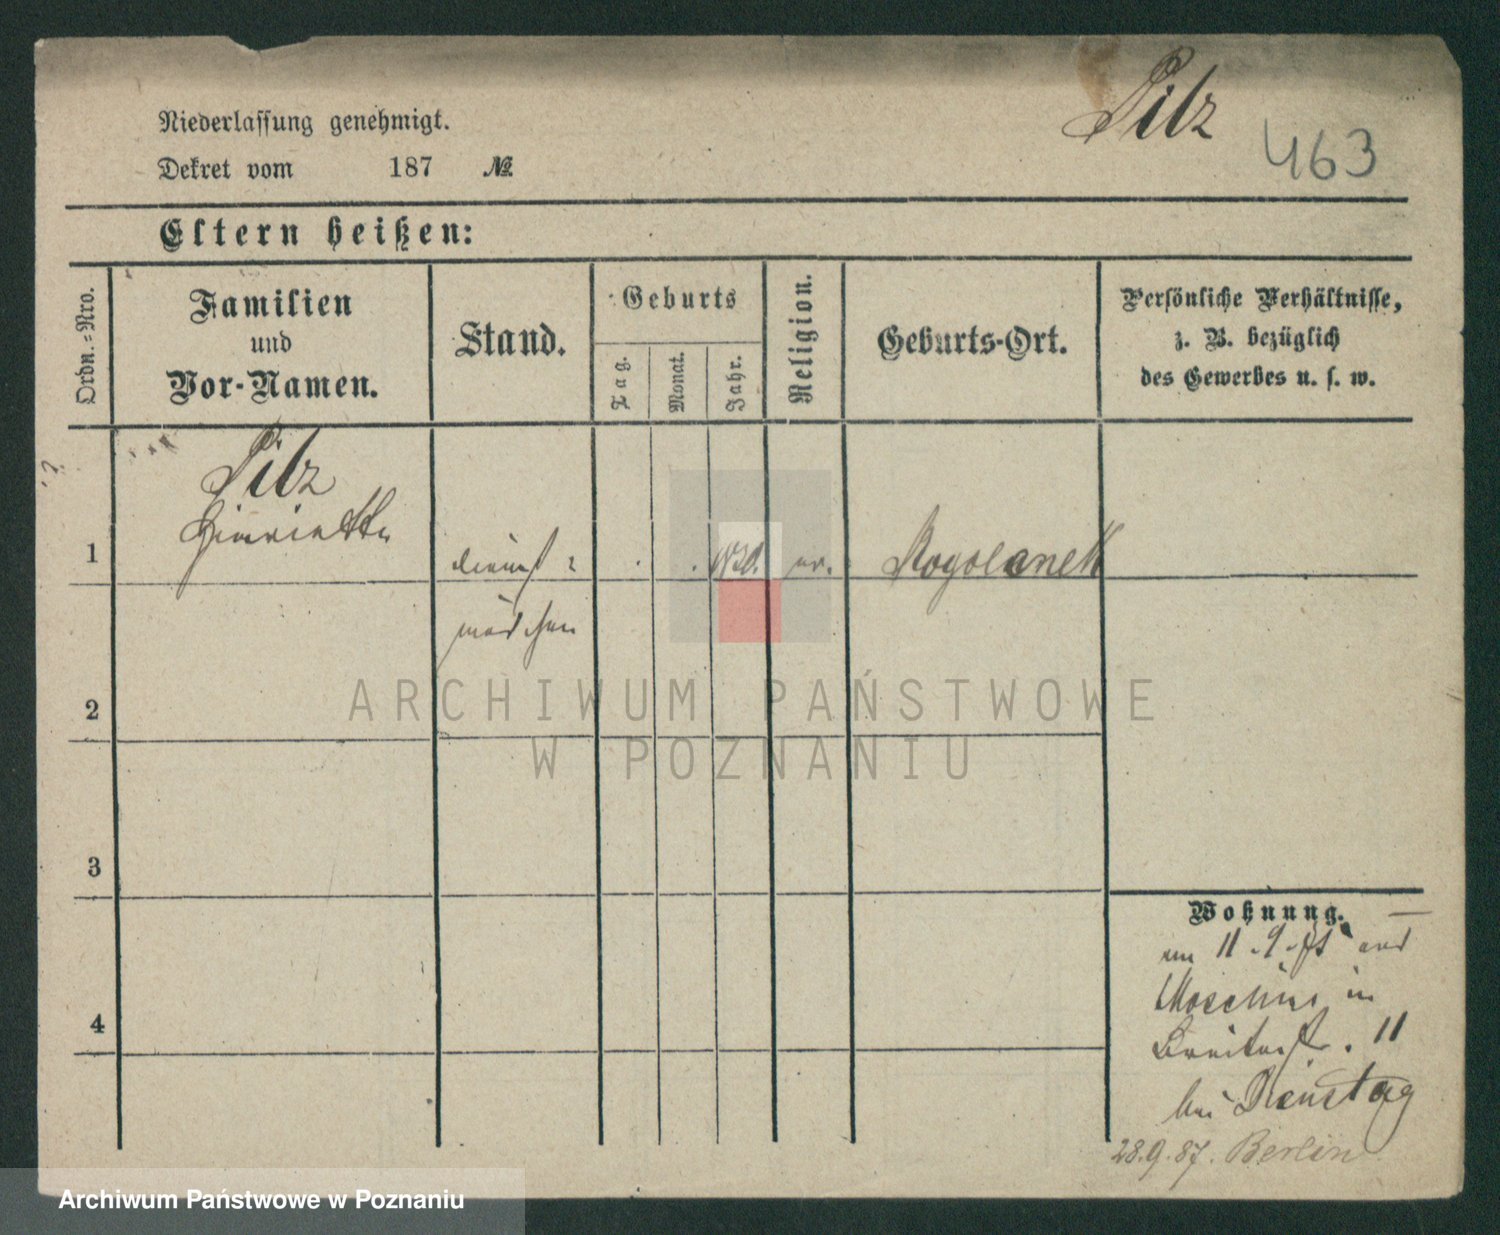 Pilz
463
Niederlassung genehmigt.
Dekret vom 187 №
Eltern heißen:
Ordn.=Nro.
Familien
und
Vor-Namen.
Stand.
Geburts
Tag.
Monat.
Jahr.
Religion.
Geburts-Ort.
Persönliche Verhältnisse,
z. B. bezüglich
des Gewerbes u. s. w.
1
Pilz
Henriette
dienst=
mädchen
ev.
2
3
4
Wohnung.
11
in
Breitestr. 11
bei Dienstag
28.9.87. Berlin
ARCHIWUM PAŃSTWOWE
W POZNANIU
Archiwum Państwowe w Poznaniu